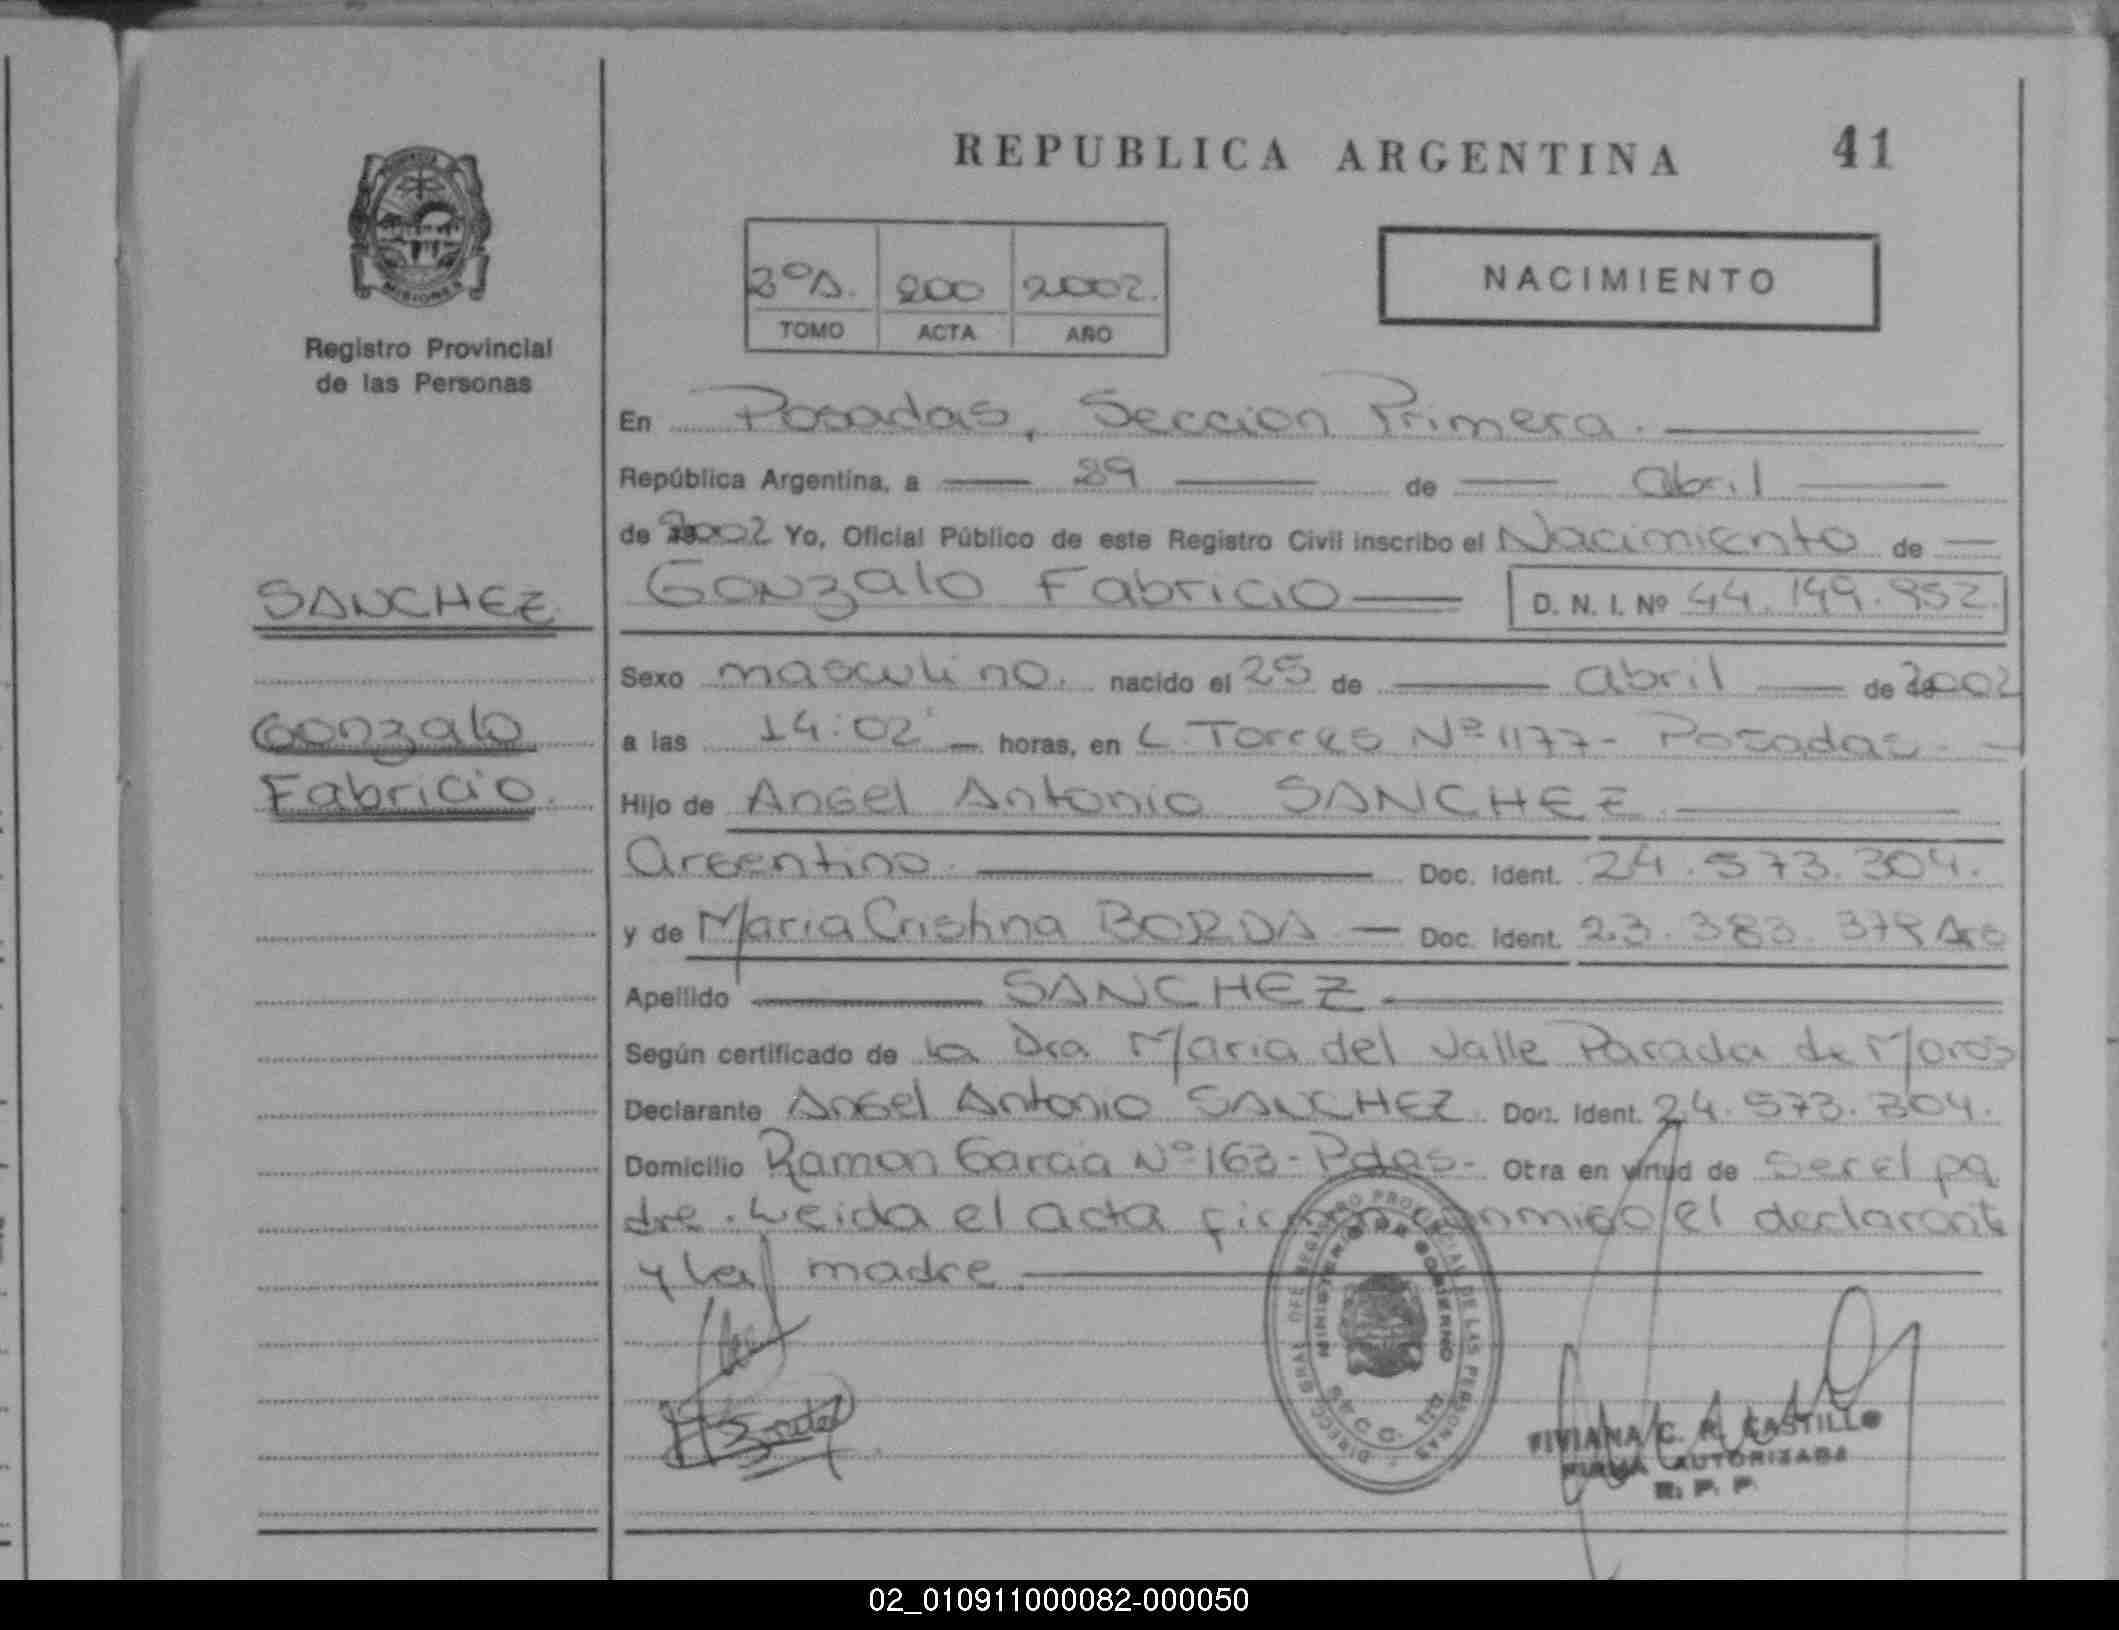 REPUBLICA ARGENTINA 41
MISIONES
Registro Provincial
de las Personas
2ºA. 200 2002.
TOMO ACTA AÑO
NACIMIENTO
En Posadas, Seccion Primera.
República Argentina, a 29 de abril
de 2002 Yo, Oficial Público de este Registro Civil inscribo el Nacimiento de
SANCHEZ
Gonzalo Fabricio D. N. I. Nº 44.149.952.
Sexo masculino. nacido el 25 de abril de 2002
Gonzalo
a las 14:02 horas, en L. Torres Nº 1177- Posadas.
Fabricio.
Hijo de Angel Antonio SANCHEZ.
Argentino. Doc. Ident. 24.573.304.
y de Maria Cristina BORDA Doc. Ident. 23.383.379 Arg
Apellido SANCHEZ
Según certificado de la Dra Maria del Valle Parada de Moros
Declarante Angel Antonio SANCHEZ. Doc. Ident. 24.573.304.
Domicilio Ramon Garcia Nº 163- Pdas- Otra en virtud de ser el pa
dre. Leida el acta firman conmigo el declarante
y la madre
DIRECC. GRAL. DEL REGISTRO PROVINCIAL DE LAS PERSONAS
MINISTERIO DE GOBIERNO
SECC. 1ra
VIVIANA C. R. CASTILLO
FIRMA AUTORIZADA
R. P. P.
02_010911000082-000050